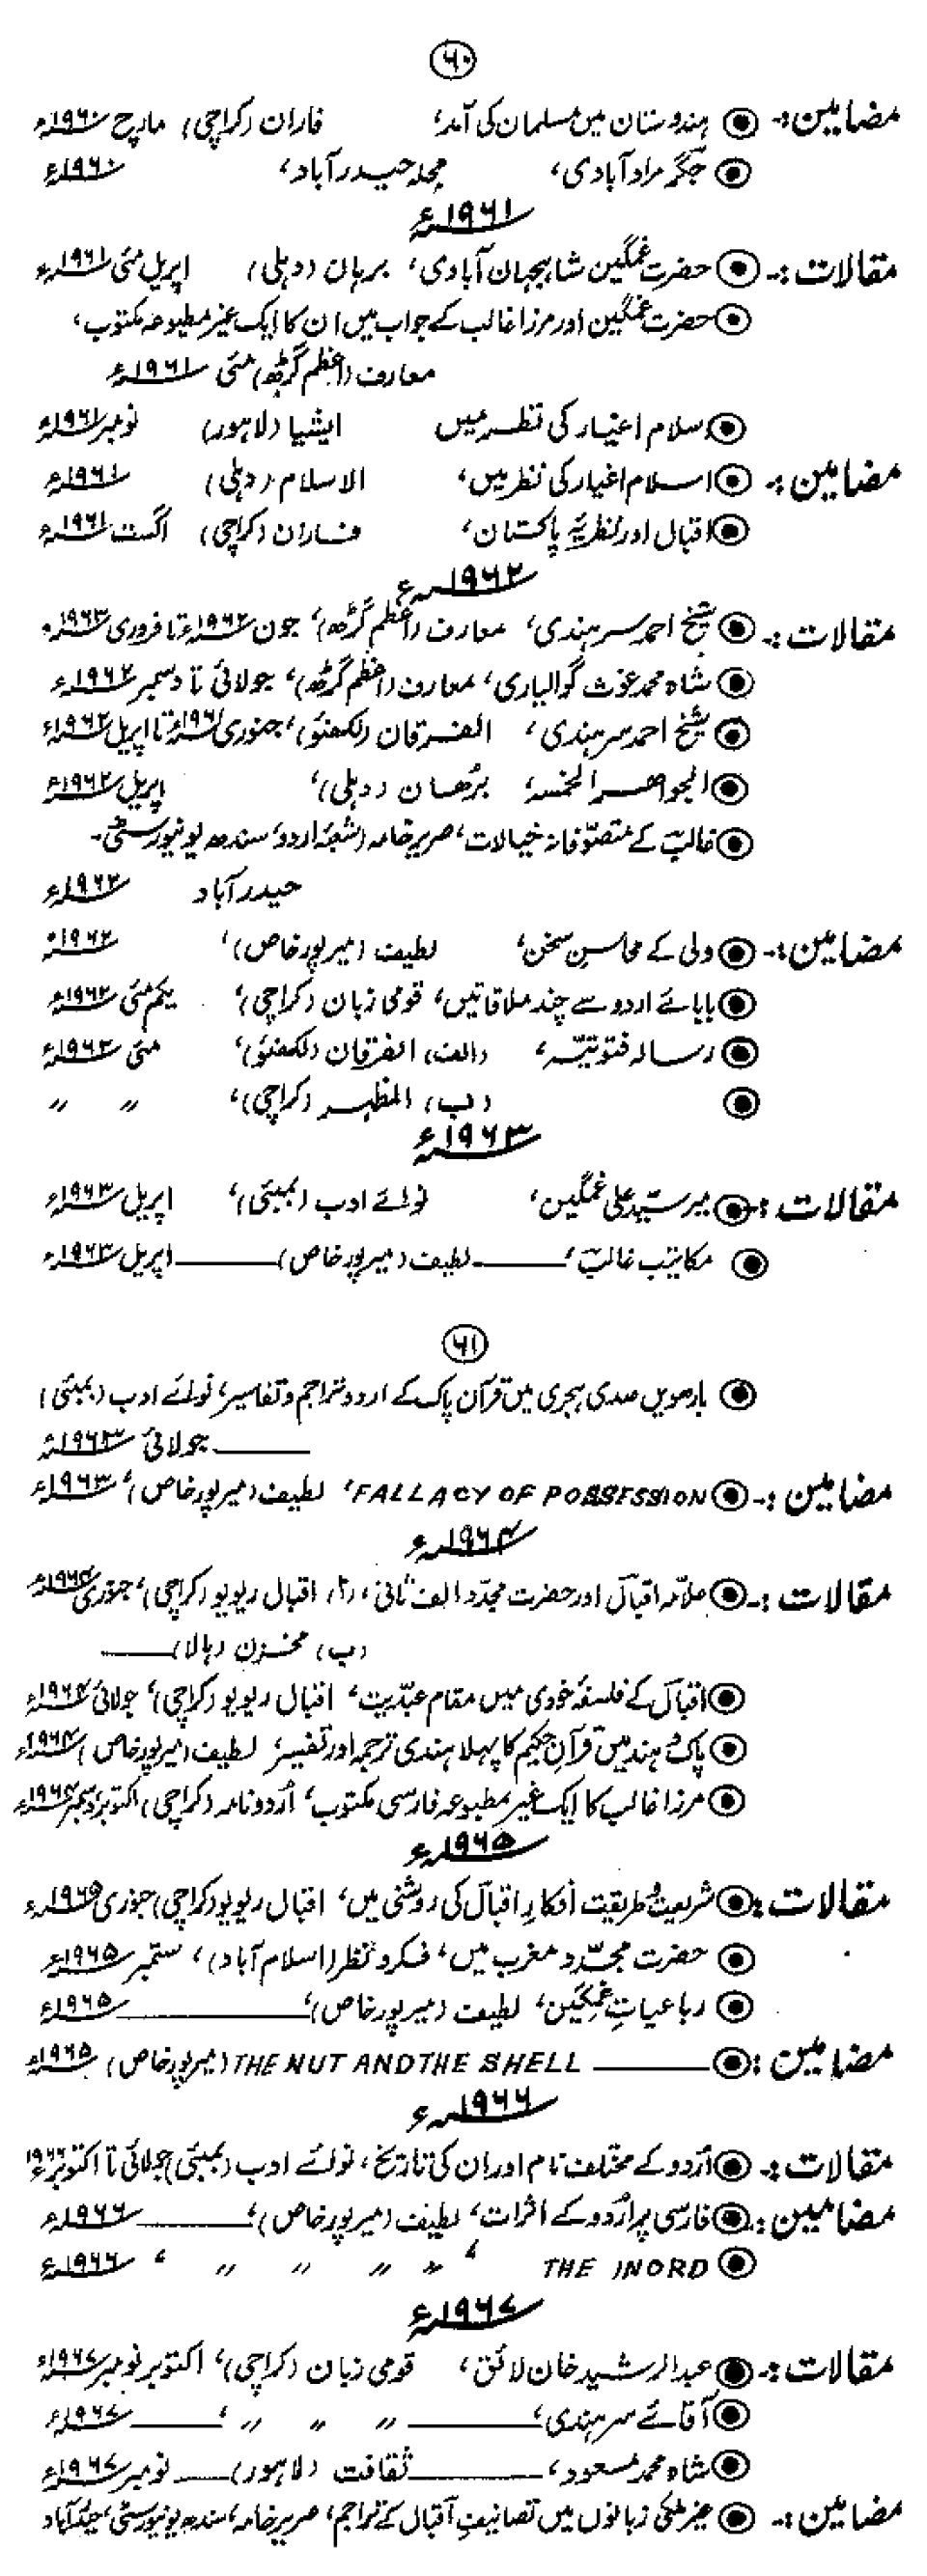 ۶۰
مضامین :- ◉ ہندوستان میں مسلمان کی آمد، فاران (کراچی) مارچ ۱۹۶۰ء
◉ جگر مراد آبادی، مجلہ حیدرآباد، ۱۹۶۰ء
۱۹۶۱ء
مقالات :- ◉ حضرت غمگین شاہجہان آبادی، برہان (دہلی) اپریل مئی ۱۹۶۱ء
◉ حضرت غمگین اور مرزا غالب کے جواب میں ان کا ایک غیر مطبوعہ مکتوب،
معارف (اعظم گڑھ) مئی ۱۹۶۱ء
◉ اسلام اغیار کی نظر میں ایشیا (لاہور) نومبر ۱۹۶۱ء
مضامین :- ◉ اسلام اغیار کی نظر میں، الاسلام (دہلی) ۱۹۶۱ء
◉ اقبال اور نظریۂ پاکستان، فاران (کراچی) اگست ۱۹۶۱ء
۱۹۶۲ء
مقالات :- ◉ شیخ احمد سرہندی، معارف (اعظم گڑھ)، جون ۱۹۶۲ء تا فروری ۱۹۶۳ء
◉ شاہ محمد غوث گوالیاری، معارف (اعظم گڑھ)، جولائی تا دسمبر ۱۹۶۲ء
◉ شیخ احمد سرہندی، الفرقان (لکھنؤ)، جنوری ۱۹۶۱ء تا اپریل ۱۹۶۲ء
◉ الجواھر الخمسہ، برُھان (دہلی)، اپریل ۱۹۶۲ء
◉ غالب کے متصوّفانہ خیالات، صریر خامہ (شعبۂ اردو، سندھ یونیورسٹی۔
حیدرآباد ۱۹۶۲ء
مضامین :- ◉ ولی کے محاسنِ سخن، لطیف (میرپور خاص)، ۱۹۶۲ء
◉ بابائے اردو سے چند ملاقاتیں، قومی زبان (کراچی)، یکم مئی ۱۹۶۲ء
◉ رسالہ فتوتیّہ، (الف) الفرقان (لکھنؤ)، مئی ۱۹۶۲ء
◉ (ب) المظہر (کراچی)، ״ ״
۱۹۶۳ء
مقالات :- ◉ میر سیّد علی غمگین، نوائے ادب (بمبئی)، اپریل ۱۹۶۳ء
◉ مکاتیب غالب، ــــ لطیف (میرپور خاص) ــــ اپریل ۱۹۶۳ء
۶۱
◉ بارھویں صدی ہجری میں قرآن پاک کے اردو تراجم و تفاسیر، نوائے ادب (بمبئی)
ــــ جولائی ۱۹۶۳ء
مضامین :- ◉ FALLACY OF POSSESSION، لطیف (میرپور خاص)، ۱۹۶۳ء
۱۹۶۴ء
مقالات :- ◉ علامہ اقبال اور حضرت مجدّد الف ثانی، (ا) اقبال ریویو (کراچی)، جنوری ۱۹۶۴ء
(ب) مخزن (ہالا) ــــ
◉ اقبال کے فلسفۂ خودی میں مقام عبدیت، اقبال ریویو (کراچی)، جولائی ۱۹۶۴ء
◉ پاک و ہند میں قرآنِ حکیم کا پہلا ہندی ترجمہ اور تفسیر، لطیف (میرپور خاص) ۱۹۶۴ء
◉ مرزا غالب کا ایک غیر مطبوعہ فارسی مکتوب، اُردو نامہ (کراچی)، اکتوبر، دسمبر ۱۹۶۴ء
۱۹۶۵ء
مقالات :- ◉ شریعت و طریقت افکارِ اقبال کی روشنی میں، اقبال ریویو (کراچی) جنوری ۱۹۶۵ء
◉ حضرت مجدّد مغرب میں، فکر و نظر (اسلام آباد)، ستمبر ۱۹۶۵ء
◉ رباعیاتِ غمگین، لطیف (میرپور خاص)، ــــ ۱۹۶۵ء
مضامین :- ◉ ــــ THE NUT AND THE SHELL (میرپور خاص) ۱۹۶۵ء
۱۹۶۶ء
مقالات :- ◉ اُردو کے مختلف نام اور ان کی تاریخ، نوائے ادب (بمبئی) جولائی تا اکتوبر ۱۹۶۶ء
مضامین :- ◉ فارسی پر اُردو کے اثرات، لطیف (میرپور خاص)، ــــ ۱۹۶۶ء
◉ THE INORD ، ״ ״ ״ ״ ، ۱۹۶۶ء
۱۹۶۷ء
مقالات :- ◉ عبدالرشید خان لائق، قومی زبان (کراچی)، اکتوبر نومبر ۱۹۶۷ء
◉ آقائے سرہندی، ــــ ״ ״ ״ ، ــــ ۱۹۶۷ء
◉ شاہ محمد مسعود، ــــ ثقافت (لاہور) ــــ نومبر ۱۹۶۷ء
مضامین :- ◉ غیر ملکی زبانوں میں تصانیفِ اقبال کے تراجم، صریر خامہ، سندھ یونیورسٹی، حیدرآباد